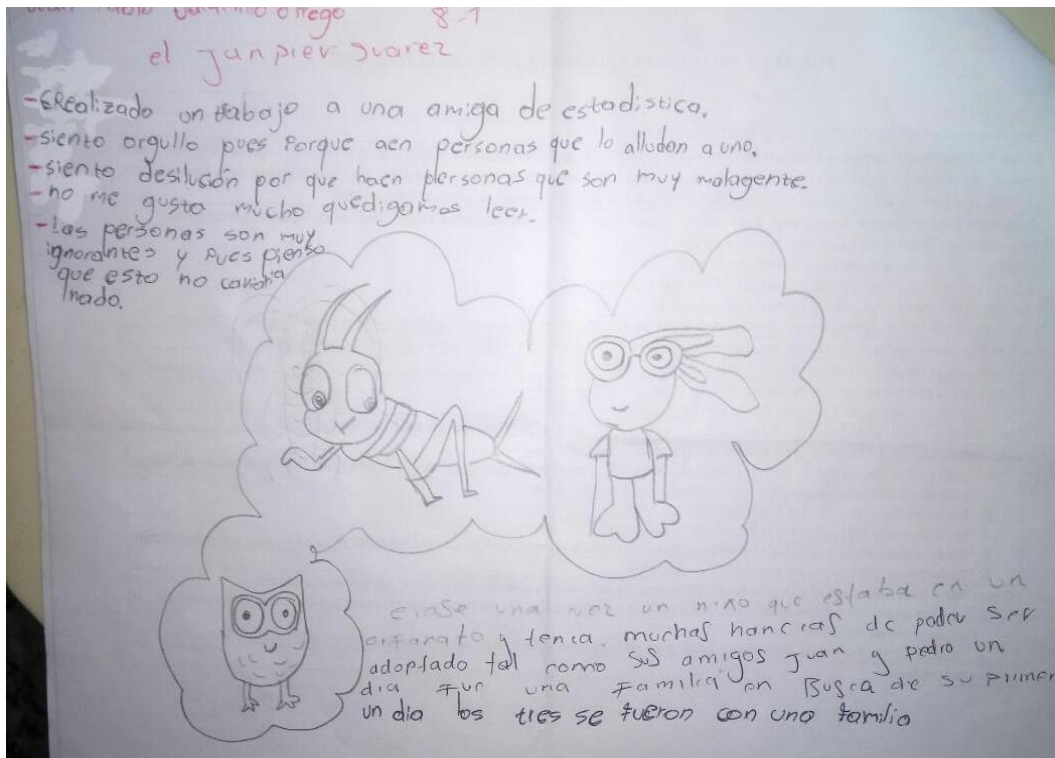 8-1
el Junpier Suarez
-ERealizado un trabajo a una amiga de estadistica.
-siento orgullo pues Porque aen personas que lo alludan a uno.
-siento desilusión por que haen personas que son muy malagente.
-no me gusta mucho quedigamos leer.
-Las personas son muy
ignorantes y pues pienso
que esto no
nado.
erase una vez un niño que estaba en un
y tenia. muchas de poder ser
adoptado tal como sus amigos Juan y pedro un
dia fue una Familia en Busca de su primer
un dia los tres se fueron con una familia